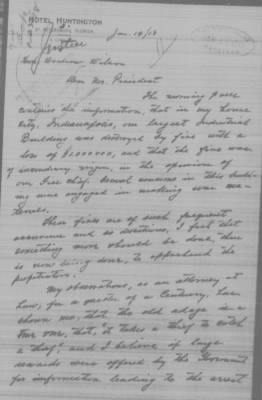 HOTEL HUNTINGTON
ST. PETERSBURG, FLORIDA
Jan. 14/18
Justice
Hon. Woodrow Wilson
Dear Mr. President
The morning press
contains the information, that in my home
city, Indianapolis, our largest Industrial
Building was destroyed by fire with a
loss of $1,000,000, and that the fire was
of incendiary origin, in the opinion of
our Fire chief. Several concerns in this build-
ing were engaged in making war ma-
terials.
These fires are of such frequent
occurrence and so disastrous, I feel that
something more should be done, than
is now being done, to apprehend the
perpetrators.
My observations, as an attorney at
Law, for a quarter of a Century, has
shown me, that the old adage is a
true one, that, "it takes a thief to catch
a thief", and I believe if large
rewards were offered by the Government
for information leading to the arrest